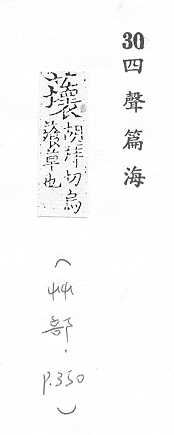 30四聲篇海
蘾胡拜切烏
蕵草也
(艸部.P.350)